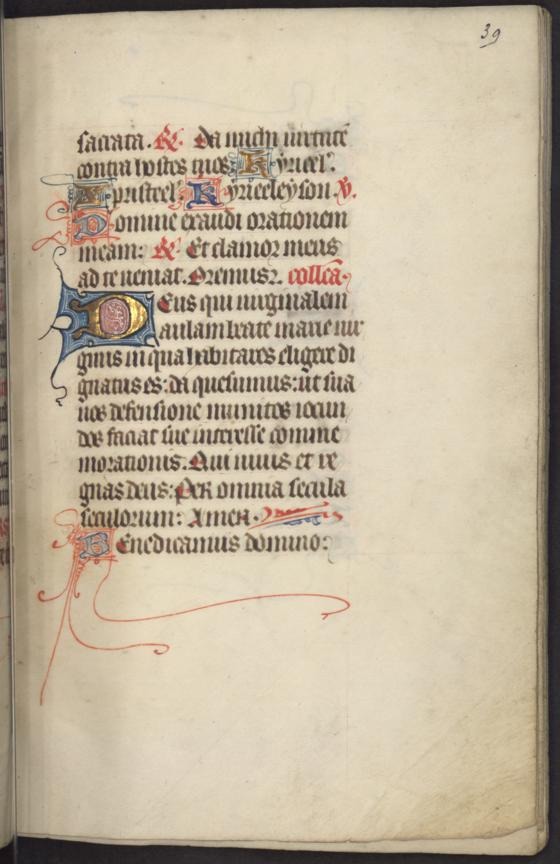 39
sacrata. R. Da michi virtutē
contra hostes tuos: Kyrieel'.
Xpristeel'. Kyrieeleyson. V.
Domine exaudi orationem
meam: R. Et clamor meus
ad te veniat. Oremus. collcā.
Deus qui virginalem
aulam beate marie vir
ginis in qua habitares eligere di
gnatus es: da quesumus: ut sua
nos defensione munitos iocun
dos faciat sue interesse comme
morationis. Qui vivis et re
gnas deus: Per omnia secula
seculorum: Amen.
Benedicamus domino: